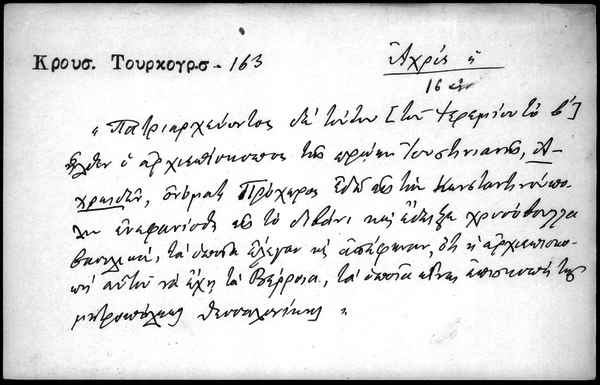 Κρουσ. Τουρκογρ.σ - 163
Ἀχρίς ἡ
16
"Πατριαρχεύοντος δὲ τούτου [τοῦ Ἰερεμίου τοῦ β']
ἦλθεν ὁ ἀρχιεπίσκοπος τῆς πρώτης Ἰουστινιανῆς, Ἀ-
χρειδῶν, ὀνόματι Πρόχορος ἐδῶ εἰς τὴν Κωνσταντινούπο-
λιν ἐνεφανίσθη εἰς τὸ διβάνι καὶ ἔδειξε χρυσόβουλλα
βασιλικά, τὰ ὁποῖα ἔλεγαν καὶ ἀπέφαιναν, ὅτι ἡ ἀρχιεπισκο-
πή αὐτοῦ νὰ ἔχῃ τὰ Βέρροια, τὰ ὁποῖα εἶναι ἐπισκοπὴ τῆς
μητροπόλεως Θεσσαλονίκης "